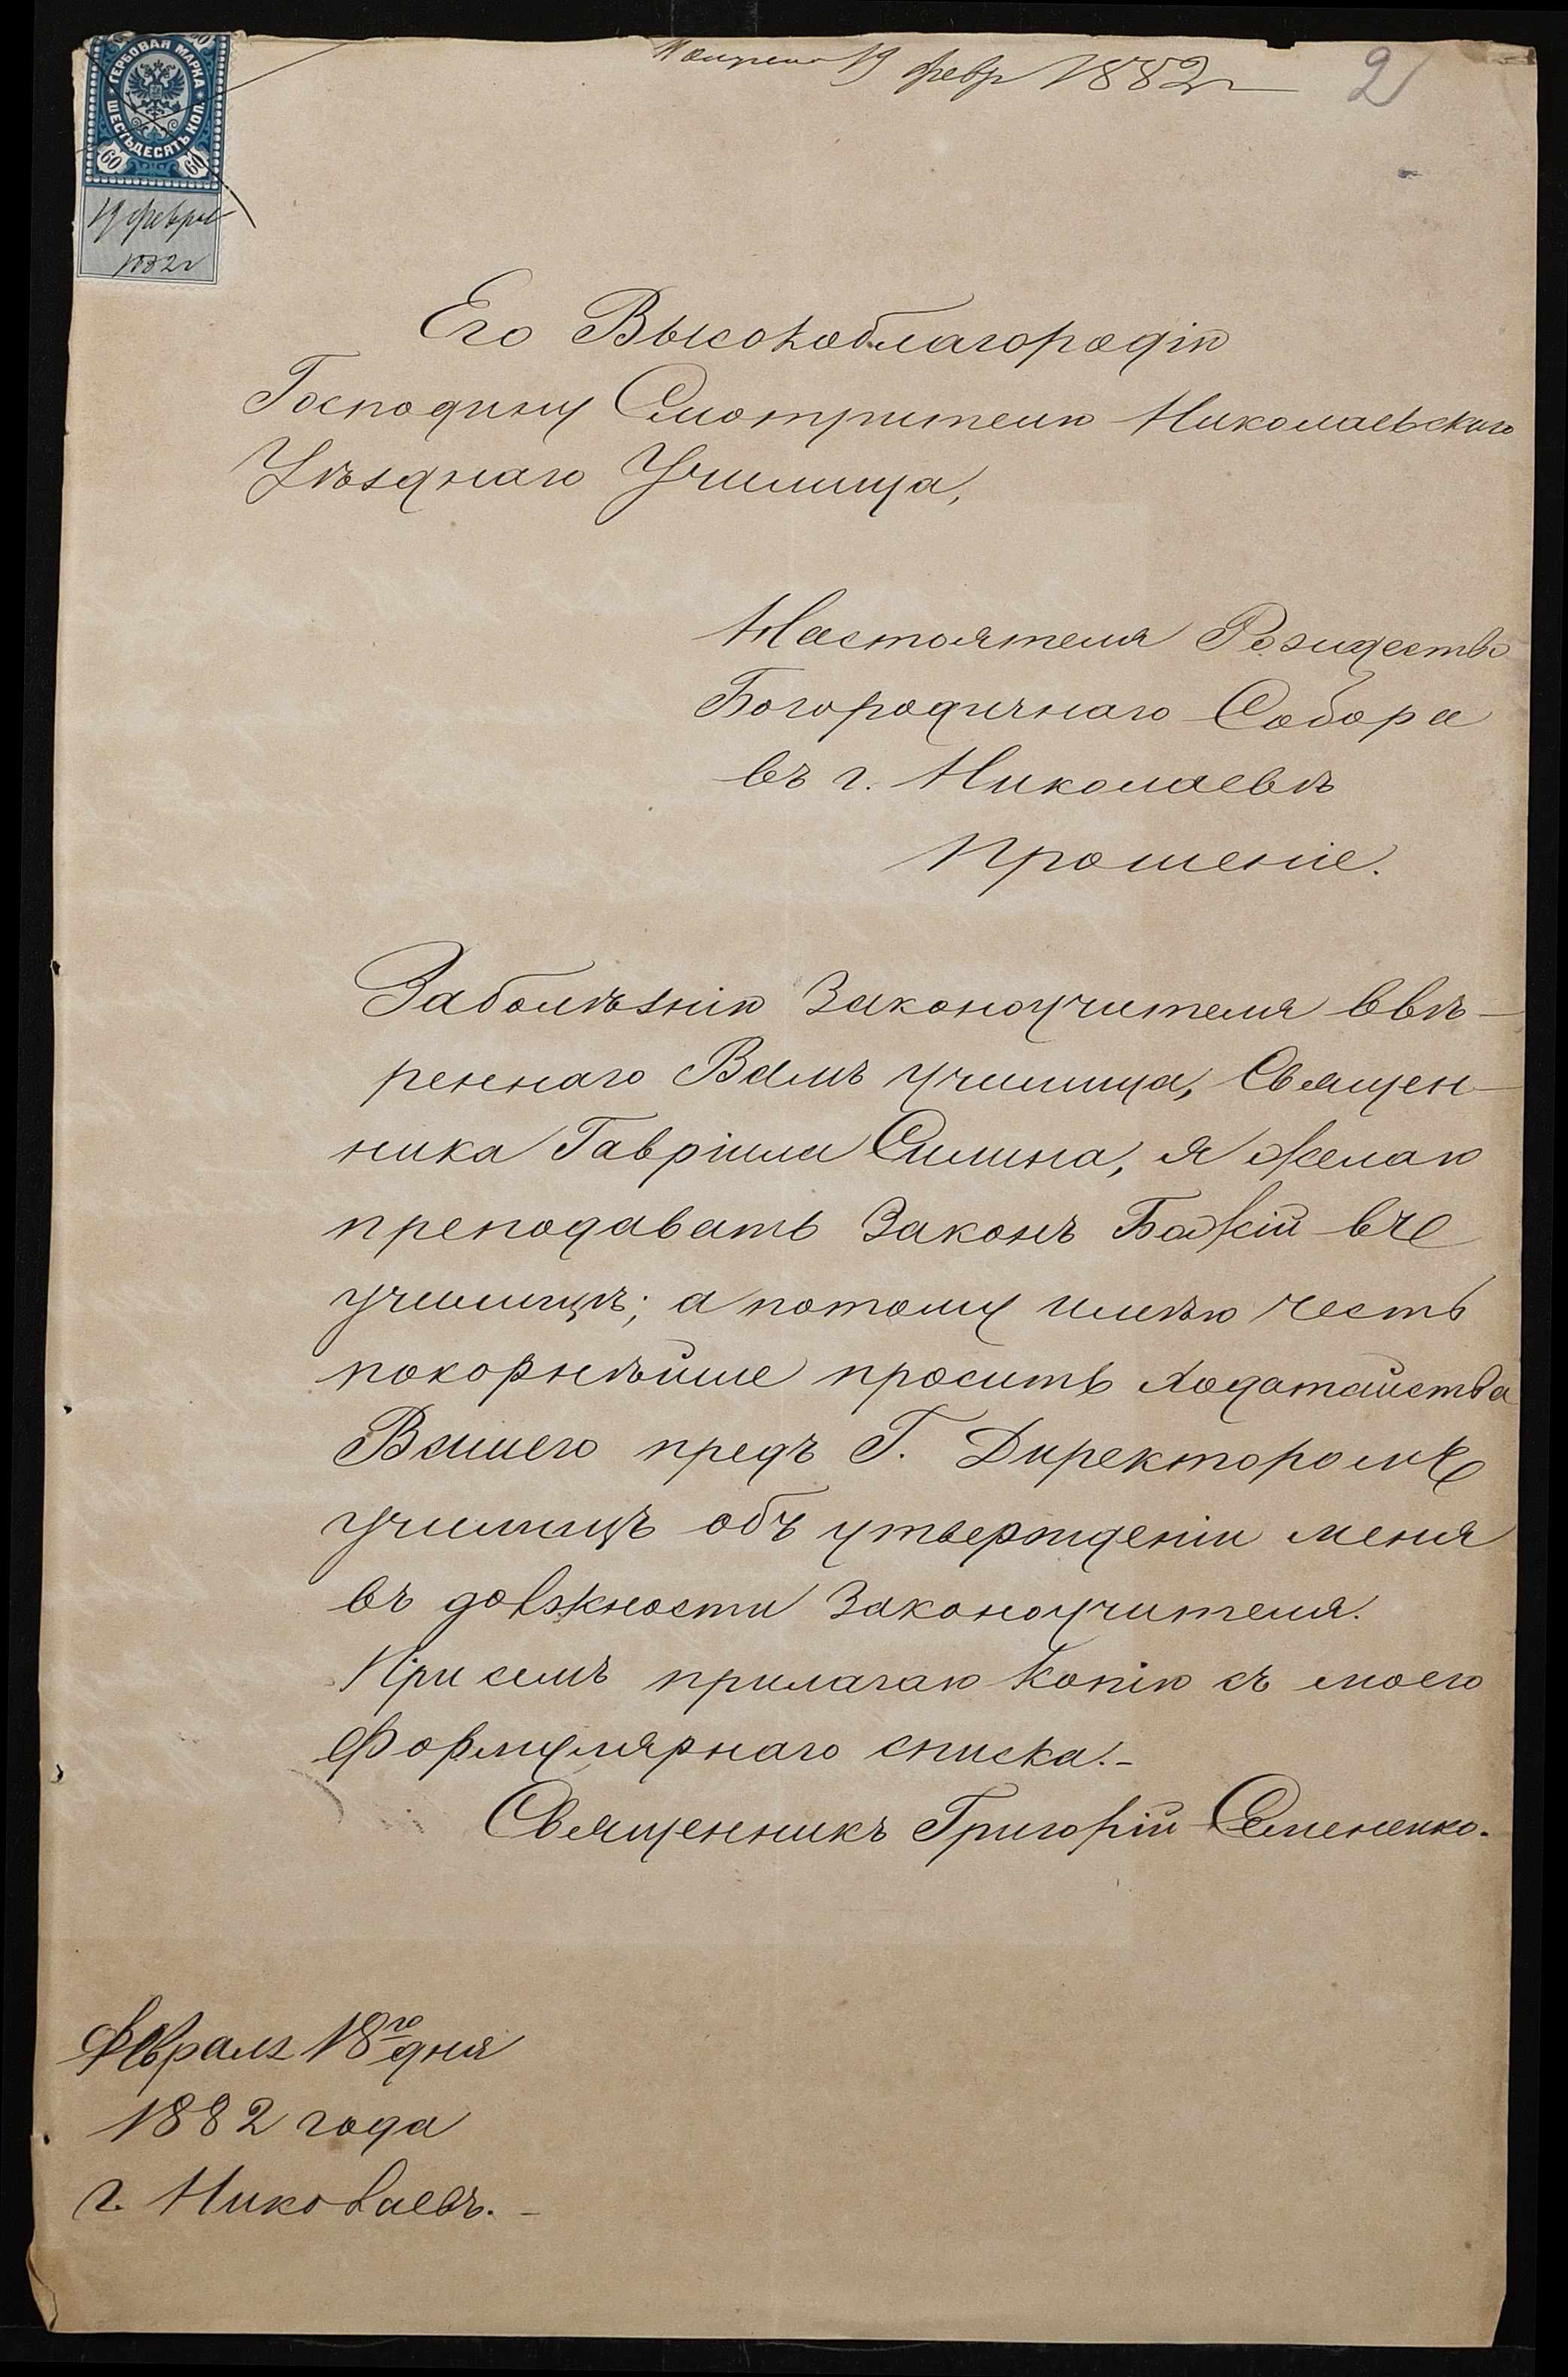 19 февр 1882 г
2
ГЕРБОВАЯ МАРКА
ШЕСТЬДЕСЯТЪ КОП.
60 60
19 февра
1882 г
Его Высокоблагородію
Господину Смотрителю Николаевскаго
Уѣзднаго Училища,
Настоятеля Рождество
Богородичнаго Собора
въ г. Николаевѣ
Прошеніе.
За болѣзнію Законоучителя ввѣ-
реннаго Вамъ училища, Священ-
ника Гавріила Силина, я желаю
преподавать Законъ Божій въ
училищѣ; а потому имѣю честь
покорнѣйше просить ходатайства
Вашего предъ Г. Директоромъ
училищъ объ утвержденіи меня
въ должности Законоучителя.
При семъ прилагаю копію съ моего
формулярнаго списка.-
Священникъ Григорій Семененко.
Февраля 18го дня
1882 года
г. Николаевъ.-